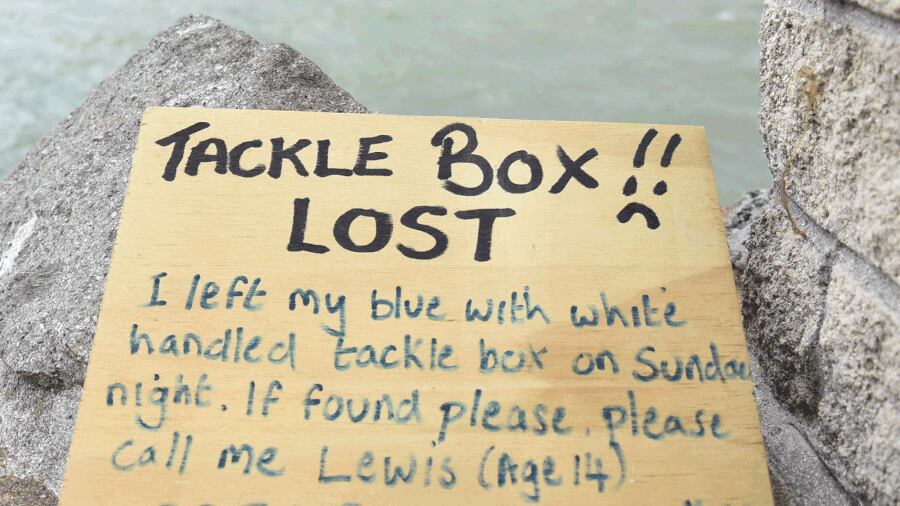 TACKLE BOX !!
LOST
I left my blue with white
handled tackle box on Sunday
night. If found please, please
call me Lewis (Age 14)